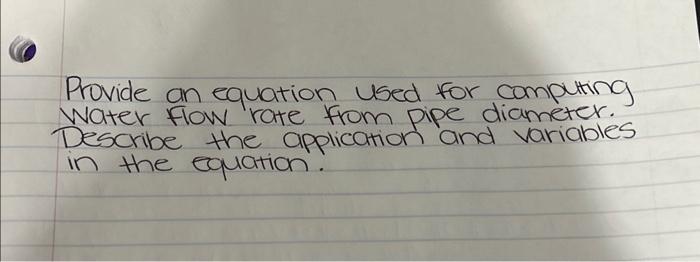 Provide an equation used for computing
Water flow rate from pipe diameter.
Describe the application and variables
in the equation.